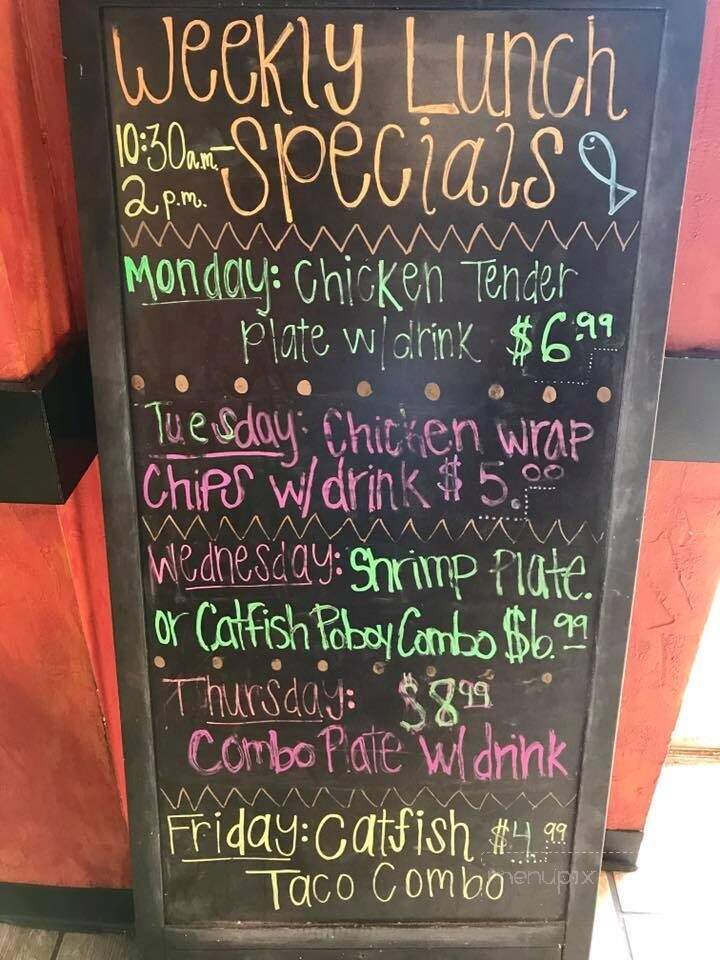 Weekly Lunch
10:30a.m.-
2 p.m.
Specials
Monday: Chicken Tender
Plate w/drink $6.99
Tuesday: Chicken wrap
Chips w/drink $5.00
Wednesday: Shrimp Plate.
or Catfish Poboy Combo $6.99
Thursday: $8.99
Combo Plate w/drink
Friday: Catfish $4.99
Taco Combo
menupix